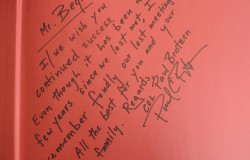 Mr. Beg
I/we wish you
continued success.
Even though it has been a
few years since we last met, I
remember fondly our last meeting
All the best for you and your
family.
Regards,
Paul Brotzen